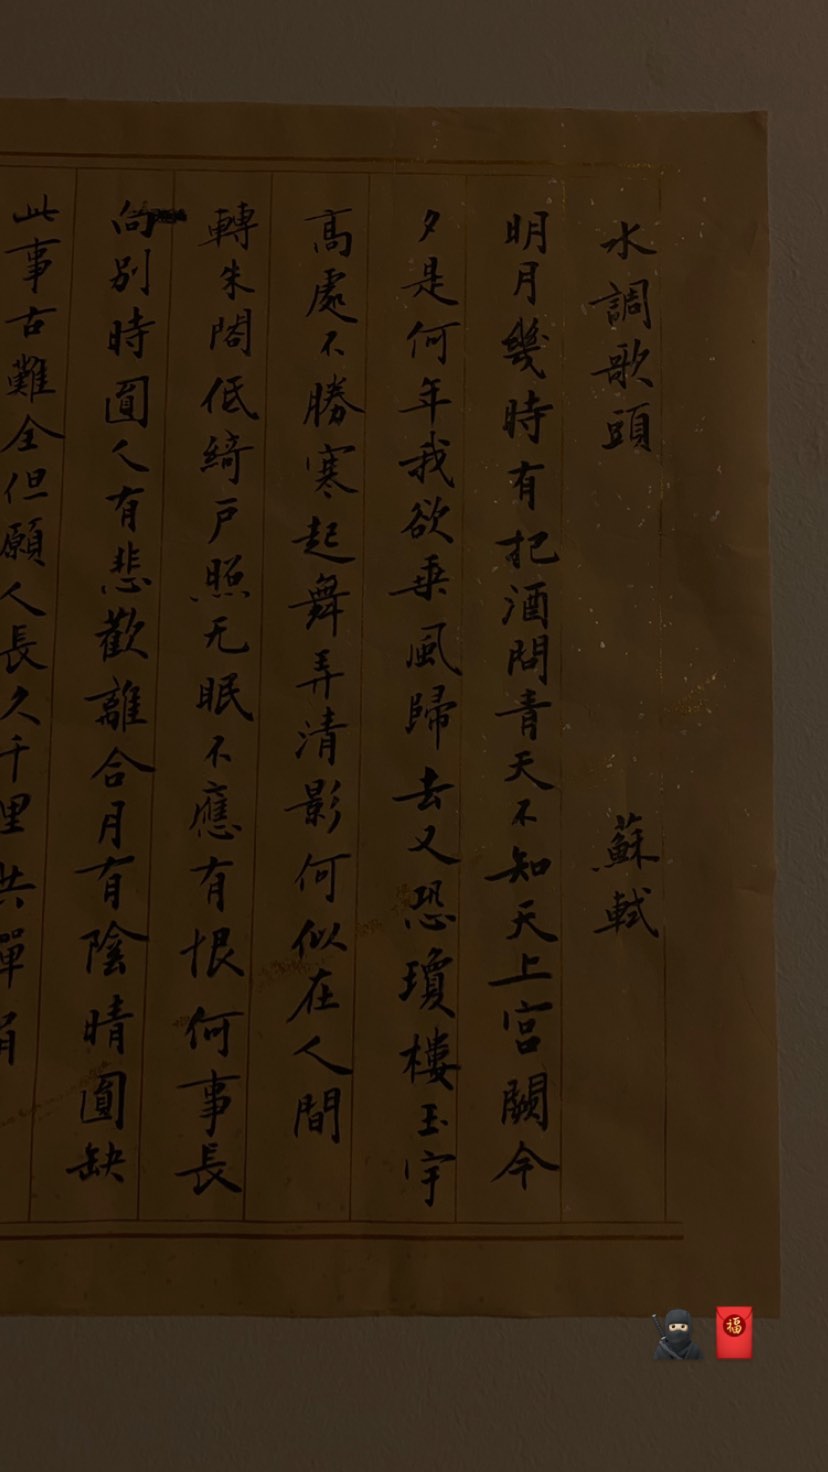 水調歌頭 蘇軾
明月幾時有把酒問青天不知天上宮闕今
夕是何年我欲乘風歸去又恐瓊樓玉宇
高處不勝寒起舞弄清影何似在人間
轉朱閣低綺戶照无眠不應有恨何事長
向別時圓人有悲歡離合月有陰晴圓缺
此事古難全但願人長久千里共嬋娟
福